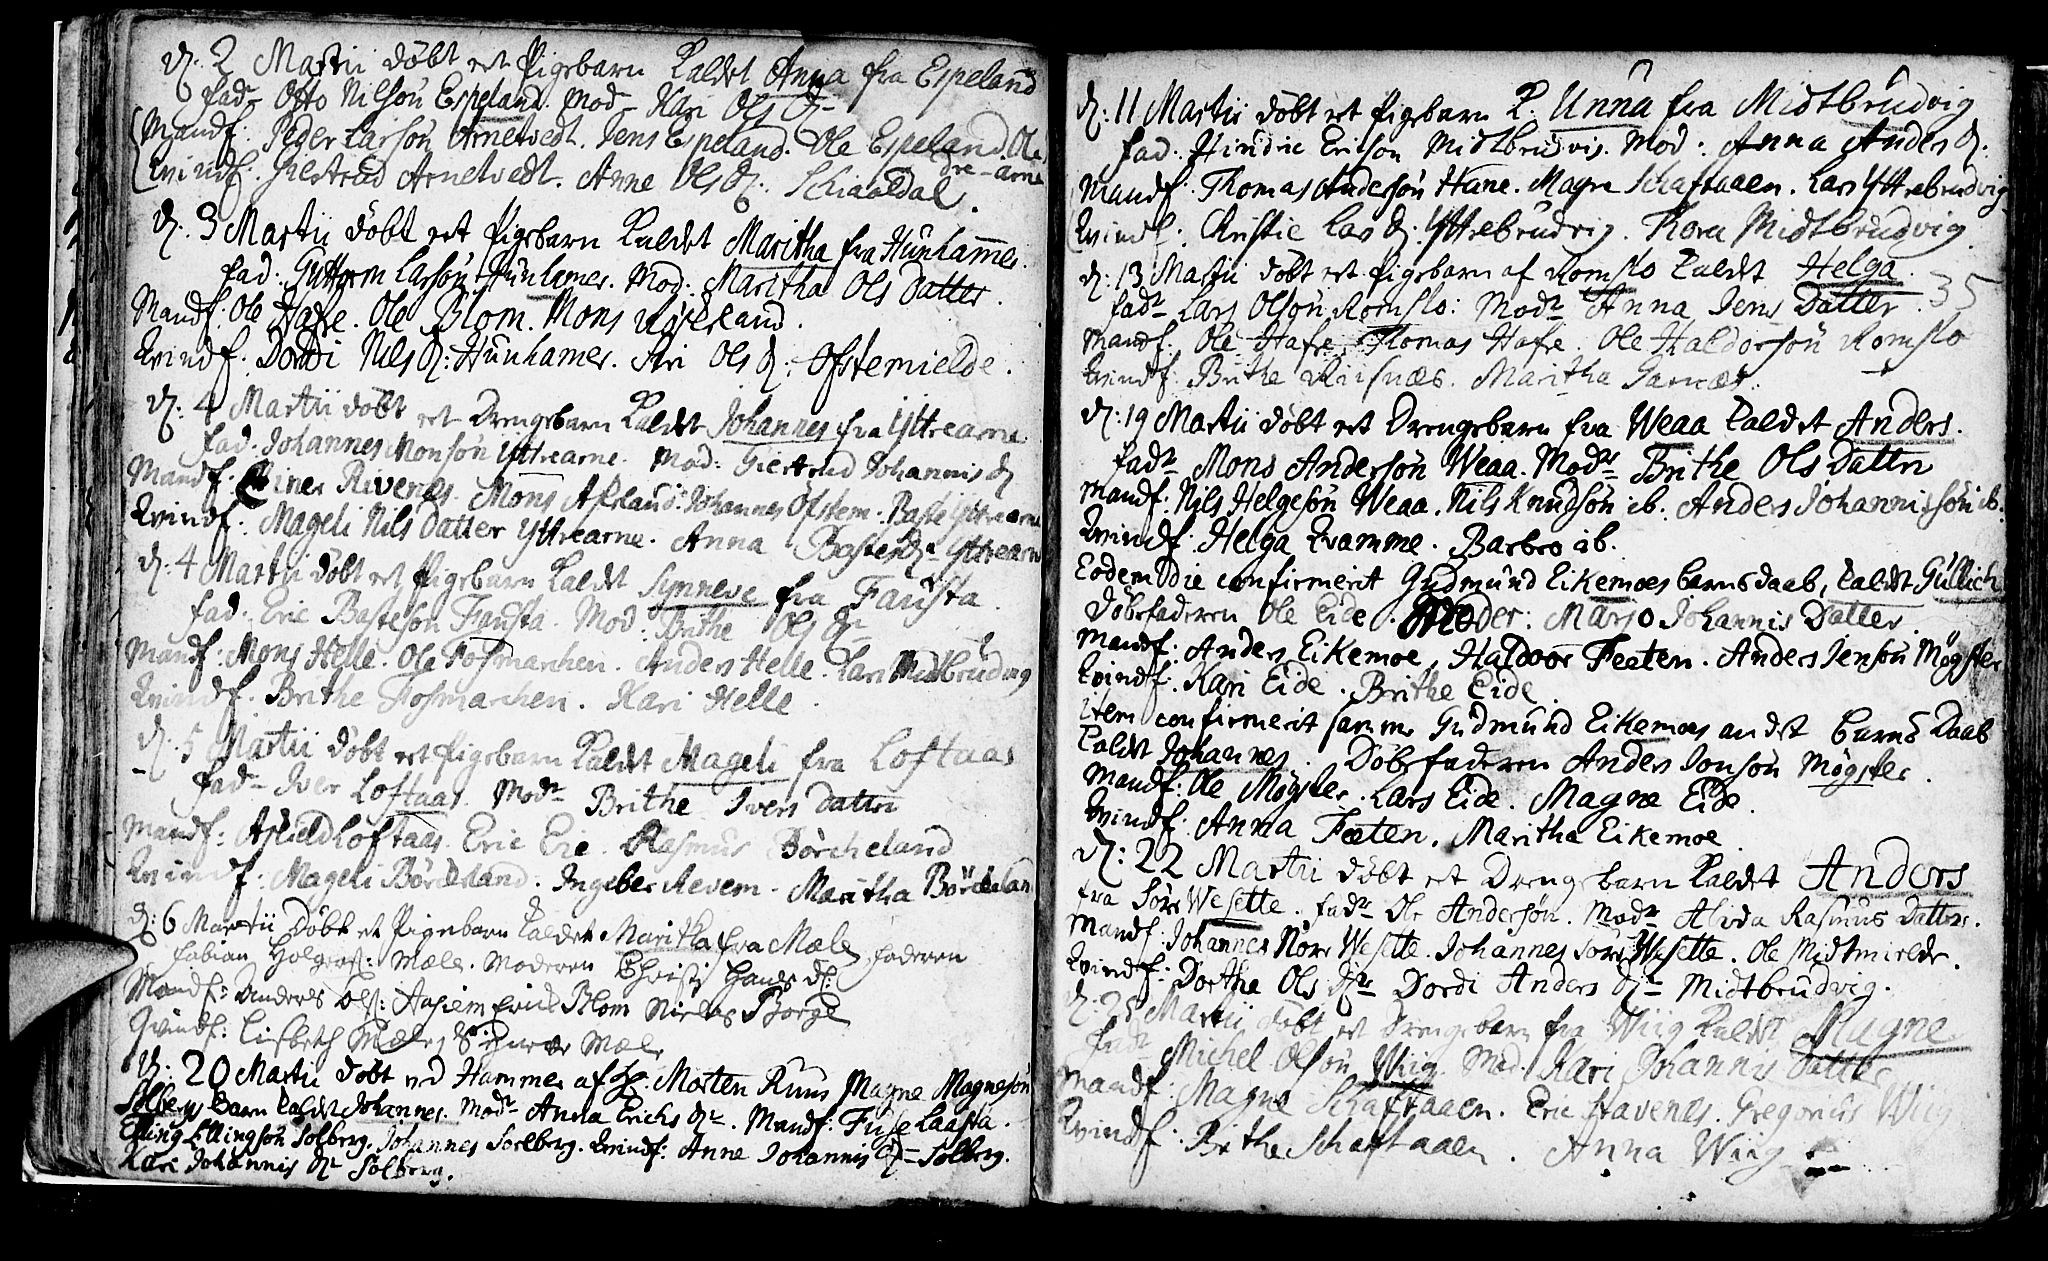 d. 2 Martii døbt et Pigebarn Kaldet Anna fra Espeland
fad. Otto Nilsøn Espeland. Mod. Kari Ols D.
Mandf: Peder Larsøn Arnetvedt. Jens Espeland. Ole Espeland. Ole
Kvindf: Giertrud Arnetvedt. Anne Ols D. Schiaaldal.
d. 3 Martii døbt et Pigebarn Kaldet Maritha fra Hunhammer.
fad: Guttorm Larsøn Hunhamer. Mod: Maritha Ols Datter.
Mandf: Ole Hafre. Ole Blom. Mons Røseland.
Kvindf: Dordi Nils D: Hunhamer. Ols D: Ofstemielde.
d. 4 Martii døbt et Drengebarn Kaldet Johannes fra Yttrearne
fad. Johannes Monsøn Yttrearne. Mod: Giertrud Johannis D
Mandf. Einer Rivenes. Mons Johannes Ofstem. Baste Yttrearne
Kvindf: Mageli Nils Datter Yttrearne. Anna Yttrearne
d. 4 Martii døbt et Pigebarn Kaldet Synneve fra Fausta.
fad. Eric Bastesøn Fausta. Mod: Brithe Ols D.
Mandf: Mons Helle. Ole Fosmarchen. Anders Helle. Lars Midtbrudvig
Kvindf. Brithe Fosmarchen. Kari Helle.
d. 5 Martii døbt et Pigebarn Kaldet Mageli fra Loftaas
fad. Iver Loftaas. Mod. Brithe Ivers Datter
Mandf: Loftaas. Eric Rasmus Børcheland
Kvindf: Mageli Børcheland. Ingeber Revem. Maritha
d. 6 Martii Døbt et Pigebarn Kaldet Maritha fra Mæle faderen
Fabian Mæle. Moderen Hans D:
Mandf: Anders Ols: Blom Niels Borge
Qvindf: Lisbeth Mæle, Mæle
d. 20 Martii døbt ved Hammer af Hr. Morten Magne Magnesøn
Solberg Barn Kaldet Johannes. Modr. Anna Erichs D. Mandf: Laasta.
Elling Ellingsøn Solberg. Johannes Soelberg. Kvindf: Anne Johannis D. Solberg.
Kari Johannis D. Solberg.
d. 11 Martii døbt et Pigebarn K. Unna fra Midtbrudvig
fad. Hindric Ericson Midtbrudvig. Mod: Anna Anders D.
Mandf: Thomas Andersøn Hane. Magne Schaftaaen. Lars Yttrebrudvig
Kvindf: Kristie Lars D. Yttrebrudvig. Midtbrudvig.
d. 13 Martii døbt et Pigebarn af Romslo Kaldet Helga. 35
fadr. Lars Olsøn Romslo. Modr. Anna Jens Datter.
Mandf. Ole Hafre, Thomas Hafre. Ole Haldorsøn Romslo
Kvindf: Brithe Riisnæs. Maritha Garnæs.
d. 19 Martii døbt et Drengebarn fra Weaa Kaldet Anders.
fadr Mons Andersøn Weaa. Modr Brithe Ols Datter
Mandf: Nils Helgesøn Weaa. Nils Knudsøn ib. Anders Johannissøn ib.
Kvindf: Helga Kvamme. Barbro ib.
Eodem Die confirmerit Gudmund Eikemoes barns daab, Kaldet Gullich
Døbefaderen Ole Eide. Moder: Johannis Datter.
Mandf: Anders Eikemoe, Haldoor Feeten. Anders Jensøn Møgster
Kvindf. Kari Eide. Brithe Eide.
Item confirmerit samme Gudmund Eikemoes andet Barns Daab
Kaldet Johannes. Døbefaderen Anders Jonsøn Møgster.
Mandf: Ole Møgster. Lars Eide. Magne Eide.
Kvindf: Anna Feeten. Maritha Eikemoe.
d: 22 Martii døbt et Drengebarn Kaldet Anders
fra Søre Wesette. fadr. Ole Andersøn. Modr Rasmus Datter.
Mandf: Johannes Nore Wesette. Johannes Søre Wesette. Ole Midtmielde.
Kvindf: Dorthe Ols Dr. Dordi Anders Dr Midtbrudvig.
d. 25 Martii døbt et Drengebarn fra Wiig Kaldet Magne
fadr Michel Olsøn Wiig. Mod. Kari Johannis Datter
Mandf: Magne Schaftaaen. Eric Havenes. Gregorius Wiig
Kvindf: Brithe Schaftaaen. Anna Wiig